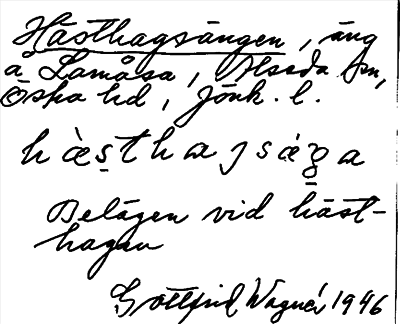 Hästhagsängen, äng
å Lamåsa, Alseda sn,
Östra hd, Jönk. l.
hàs̩thaɿsága
Belägen vid häst-
hagen
Gottfrid Wagnér 1946